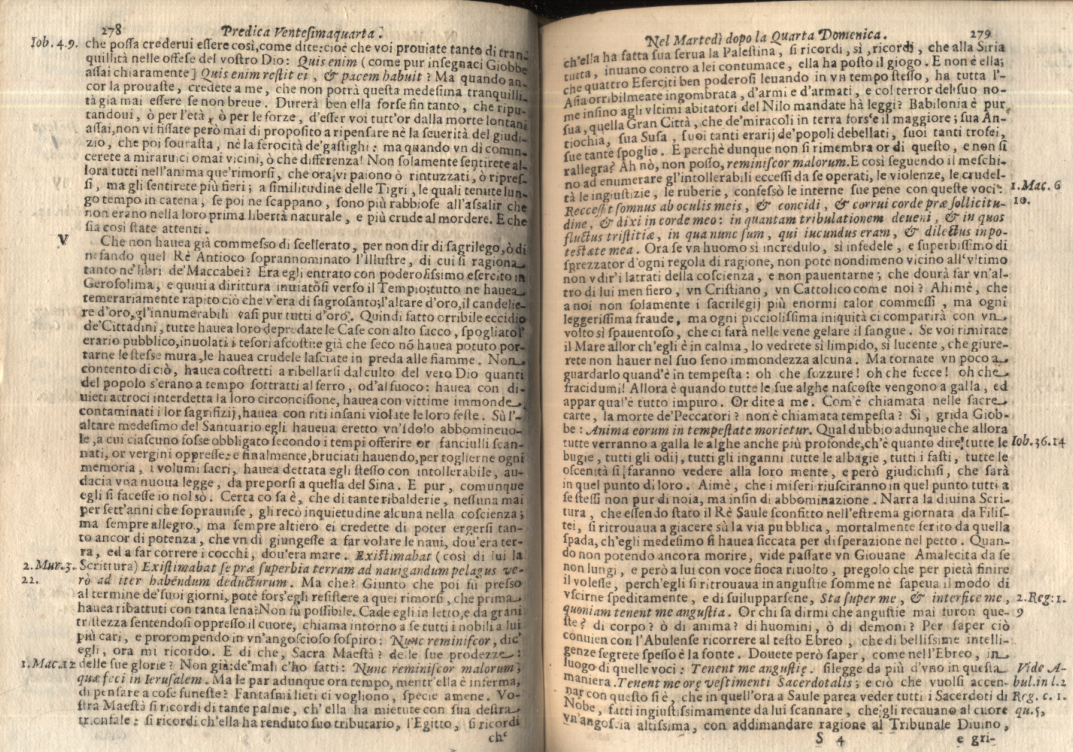 278 Predica Ventesimaquarta.
Iob. 4. 9. che possa crederui essere così, come dite: cioè che voi prouiate tanto di tran-
quillità nelle offese del vostro Dio: Quis enim (come pur insegnaci Giobbe
assai chiaramente] Quis enim restit ei, & pacem habuit? Ma quando an-
cor la prouaste, credete a me, che non potrà questa medesima tranquilli-
tà gia mai essere se non breue. Durerà ben ella forse fin tanto, che ripu-
tandoui, ò per l'età, ò per le forze, d'esser voi tutt'or dalla morte lontani
assai, non vi fissate però mai di proposito a ripensare nè la seuerità del giudi-
zio, che poi sourasta, nè la ferocità de'gastighi: ma quando vn dì comin-
cerete a mirarui ci omai vicini, ò che differenza! Non solamente sentirete al-
lora tutti nell'anima que'rimorsi, che ora, vi paiono ò rintuzzati, ò ripres-
si, ma gli sentirete più fieri; a similitudine delle Tigri, le quali tenute lun-
go tempo in catena, se poi ne scappano, sono più rabbiose all'assalir che
non erano nella loro prima libertà naturale, e più crude al mordere. E che
sia così state attenti.
V Che non hauea già commesso di scellerato, per non dir di sagrilego, ò di
nefando quel Rè Antioco soprannominato l'Illustre, di cui si ragiona
tanto ne'libri de'Maccabei? Era egli entrato con poderosissimo esercito in
Gerosolima, e quini a dirittura inuiatosi verso il Tempio; tutto ne hauea
temerariamente rapito ciò che v'era di sagrosanto; l'altare d'oro, il candelie-
re d'oro, gl'innumerabili vasi pur tutti d'oro. Quindi fatto orribile eccidio
de'Cittadini, tutte hauea loro depredate le Case con alto sacco, spogliato l'
erario pubblico, inuolati i tesori ascosti: e già che seco nō hauea potuto por-
tarne le stesse mura, le hauea crudele lasciate in preda alle fiamme. Non
contento di ciò, hauea costretti a ribellarsi dal culto del vero Dio quanti
del popolo s'erano a tempo sottratti al ferro, od'al fuoco: hauea con di-
uieti atroci interdetta la loro circoncisione, hauea con vittime immonde
contaminati i lor sagrifizij, hauea con riti insani violate le loro feste. Sù l'
altare medesimo del Santuario egli haueua eretto vn'Idolo abbomineuo-
le, a cui ciascuno fosse obbligato secondo i tempi offerire or fanciulli scan-
nati, or vergini oppresse: e finalmente, bruciati hauendo, per toglierne ogni
memoria, i volumi sacri, hauea dettata egli stesso con intollerabile, au-
dacia vna nuoua legge, da preporsi a quella del Sina. E pur, comunque
egli si facesse io nol sò. Certa cosa è, che di tante ribalderie, nessuna mai
per sett'anni che soprauuise, gli recò inquietudine alcuna nella coscienza;
ma sempre allegro, ma sempre altiero ei credette di poter ergersi tan-
to ancor di potenza, che vn dì giungesse a far volare le naui, dou'era ter-
ra, ed a far correre i cocchi, dou'era mare. Existimabat (così di lui la
2. Mac. 3. Scrittura) Existimabat se præ superbia terram ad nauigandum pelagus ve-
22. rò ad iter habendum deducturum. Ma che? Giunto che poi fù presso
al termine de'suoi giorni, potè fors'egli resistere a quei rimorsi, che prima
hauea ribattuti con tanta lena? Non fu possibile. Cade egli in letto, e da grani
tristezza sentendosi oppresso il cuore, chiama intorno a se tutti i nobili a lui
più cari, e prorompendo in vn'angoscioso sospiro: Nunc reminiscor, dic'
egli, ora mi ricordo. E di che, Sacra Maestà? delle sue prodezze:
1. Mac. 12 delle sue glorie? Non già: de'mali c'ho fatti: Nunc reminiscor malorum,
quæ feci in Ierusalem. Ma le par adunque ora tempo, mentr'ella è inferma,
di pensare a cose funeste? Fantasmi lieti ci vogliono, specie amene. Vo-
stra Maestà si ricordi di tante palme, ch'ella ha mietute con sua destra
trionfale: si ricordi ch'ella ha renduto suo tributario, l'Egitto, si ricordi
ch'
Nel Martedì dopo la Quarta Domenica. 279
ch'ella ha fatta sua serua la Palestina, si ricordi, si, ricordi, che alla Siria
tutta, inuano contro a lei contumace, ella ha posto il giogo. E non è ella;
che quattro Eserciti ben poderosi leuando in vn tempo stesso, ha tutta l'-
Asia orribilmente ingombrata, d'armi e d'armati, e col terror del suo no-
me infino agli vltimi abitatori del Nilo mandate hà leggi? Babilonia è pur
sua, quella Gran Città, che de'miracoli in terra fors'è il maggiore; sua An-
tiochia, sua Susa, suoi tanti erarij de'popoli debellati, suoi tanti trofei,
sue tante spoglie. E perchè dunque non si rimembra or di questo, e non si
rallegra? Ah nò, non posso, reminiscor malorum. E così seguendo il meschi-
no ad enumerare gl'intollerabili eccessi da se operati, le violenze, le crudel-
tà le ingiustizie, le ruberie, confessò le interne sue pene con queste voci: 1. Mac. 6
Reccessit somnus ab oculis meis, & concidi, & corrui corde præ sollicitu- 10.
dine, & dixi in corde meo: in quantam tribulationem deueni, & in quos
fluctus tristitiæ, in qua nunc sum, qui iucundus eram, & dilectus in po-
testate mea. Ora se va huomo sì incredulo, sì infedele, e superbissimo di
sprezzator d'ogni regola di ragione, non potè nondimeno vicino all'vltimo
non vdir'i latrati della coscienza, e non pauentarne; che dourà far vn'al-
tro di lui men fiero, vn Cristiano, vn Cattolico come noi? Ahimè, che
a noi non solamente i sacrilegij più enormi talor commessi, ma ogni
leggerissima fraude, ma ogni picciolissima iniquità ci comparirà con vn
volto sì spauentoso, che ci farà nelle vene gelare il sangue. Se voi rimirate
il Mare allor ch'egli è in calma, lo vedrete sì limpido, sì lucente, che giure-
rete non hauer nel suo seno immondezza alcuna. Ma tornate vn poco a
guardarlo quand'è in tempesta: oh che sozzure! oh che fecce! oh che
fracidumi! Allora è quando tutte le sue alghe nascoste vengono a galla, ed
appar qual'è tutto impuro. Or dite a me. Com'è chiamata nelle sacre
carte, la morte de'Peccatori? non è chiamata tempesta? Sì, grida Giob-
be: Anima eorum in tempestate morietur. Qual dubbio adunque che allora
tutte verranno a galla le alghe anche più profonde, ch'è quanto dire, tutte le Iob. 36. 14
bugie, tutti gli odij, tutti gli inganni tutte le albagie, tutti i fasti, tutte le
oscenità si faranno vedere alla loro mente, e però giudichisi, che sarà
in quel punto di loro. Aimè, che i miseri riusciranno in quel punto tutti a
se stessi non pur di noia, ma insin di abbominazione. Narra la diuina Scri-
tura, che essendo stato il Rè Saule sconfitto nell'estrema giornata da Filis-
tei, si ritrouaua a giacere sù la via pubblica, mortalmente ferito da quella
spada, ch'egli medesimo si hauea ficcata per disperazione nel petto. Quan-
do non potendo ancora morire, vide passare vn Giouane Amalecita da se
non lungi, e però a lui con voce fioca riuolto, pregolo che per pietà finire
il volesse, perch'egli si ritrouaua in angustie somme nè sapeua il modo di
vscirne speditamente, e di suilupparsene, Sta super me, & interfice me, 2. Reg: 1.
quoniam tenent me angustia. Or chi sa dirmi che angustie mai furon que- 9
ste? di corpo? ò di anima? di huomini, ò di demoni? Per saper ciò
conuien con l'Abulense ricorrere al testo Ebreo, che di bellissime intelli-
genze segrete spesso è la fonte. Douete però saper, come nell'Ebreo, in
luogo di quelle voci: Tenent me angustiæ. si legge da più d'vno in questa Vide A-
maniera. Tenent me oræ vestimenti Sacerdotalis; e ciò che vuolsi accen- bul. in l. 2
nar con questo si è, che in quell'ora a Saule parea veder tutti i Sacerdoti di Reg. c. 1.
Nobe, fatti ingiustissimamente da lui scannare, che gli recauano al cuore qu. 5,
vn'angoscia altissima, con addimandare ragione al Tribunale Diuino,
S 4 e gri-